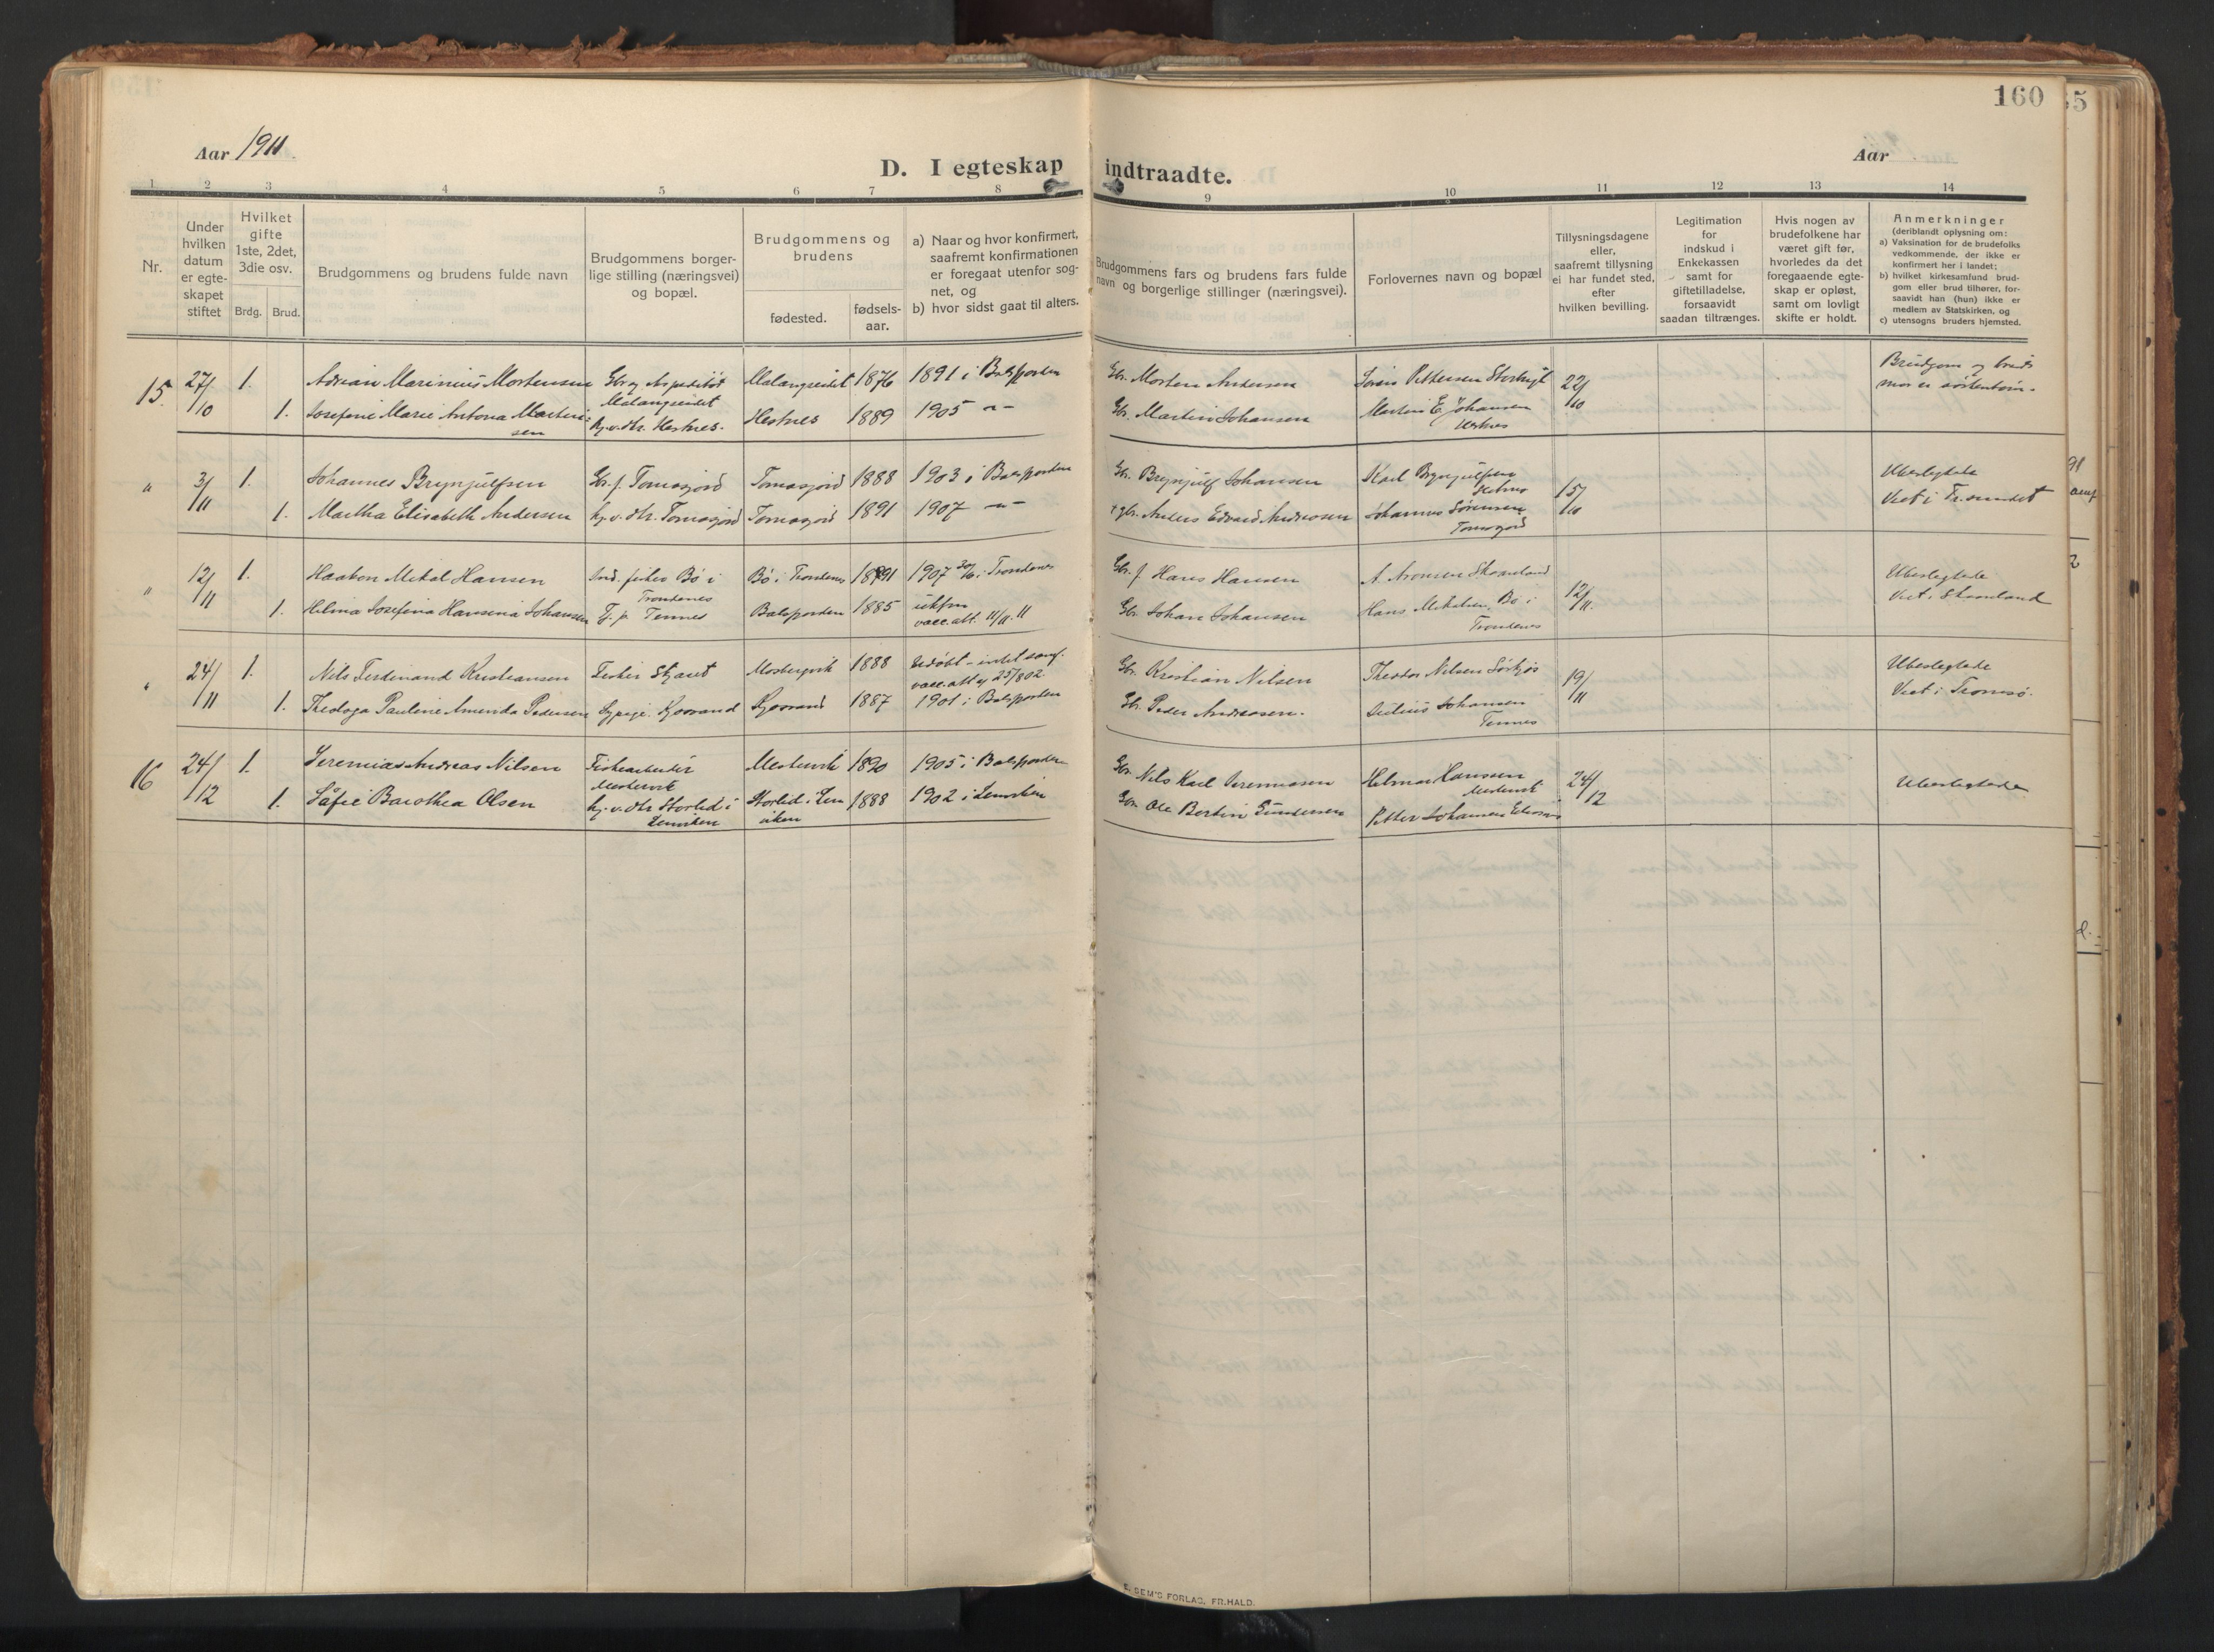 160
Aar 1911.
Aar
D. I egteskap indtraadte.
1 2 3 4 5 6 7 8 9 10 11 12 13 14
Nr.
Under hvilken datum er egteskapet stiftet
Hvilket gifte 1ste, 2det, 3die osv.
Brdg. Brud.
Brudgommens og brudens fulde navn
Brudgommens borgerlige stilling (næringsvei) og bopæl.
Brudgommens og brudens
fødested.
fødselsaar.
a) Naar og hvor konfirmert, saafremt konfirmationen er foregaat utenfor sognet, og
b) hvor sidst gaat til alters.
Brudgommens fars og brudens fars fulde navn og borgerlige stillinger (næringsvei).
Forlovernes navn og bopæl
Tillysningsdagene eller, saafremt tillysning ei har fundet sted, efter hvilken bevilling.
Legitimation for indskud i Enkekassen samt for giftetilladelse, forsaavidt saadan tiltrænges.
Hvis nogen av brudefolkene har været gift før, hvorledes da det foregaaende egteskap er opløst, samt om lovligt skifte er holdt.
Anmerkninger
(deriblandt oplysning om:
a) Vaksination for de brudefolks vedkommende, der ikke er konfirmert her i landet;
b) hvilket kirkesamfund brudgom eller brud tilhører, forsaavidt han (hun) ikke er medlem av Statskirken, og
c) utensogns bruders hjemsted.
15. 27/10 1. Adrian Marinius Mortensen Gbr og Malangseidet Malangseidet 1876 1891 i Balsfjorden Gbr. Morten Andersen Pettersen 22/10 Brudgom og bruds mor er
1. Josefine Marie Antona Martinsen hj. v. dtr. Hestnes. Hestnes 1889 1905 -"- Gbr. Martin Johansen Martin E Johansen Hestnes
" 3/11 1. Johannes Brynjulfsen Gbr. f. Tomasjord Tomasjord 1888 1903 i Balsfjorden Gbr. Brynjulf Johansen Karl Brynjulfsen 15/10 Ubeslegtede
1. Martha Elisabeth Andersen hj. v. dtr. Tomasjord Tomasjord 1891 1907 -"- + gbr. Anders Edvard Andreasen Johannes Sørensen Tomasjord Viet i Tr.sundet
" 12/11 1. Haakon Mikal Hansen Ind. fisker Bø i Trondenes Bø i Trondenes 1891 1907 i Trondenes Gbr. f. Hans Hansen A. Aronsen 12/11. Ubeslegtede
1. Helma Josefina Hansena Johansen Tj. p. Tennes Balsfjorden 1885 ukfm vacc. att. 11/11.11 Gbr. Johan Johansen Hans Mikalsen Bø i Trondenes Viet i
" 24/11 1. Nils Ferdinand Kristiansen Fisker Mestervik 1888 Udøbt - intet vacc. att. Gbr. Kristian Nilsen Theodor Nilsen 19/11 Ubeslegtede
1. Theologa Pauline Amanda Pedersen 1887 1901 i Balsfjorden Gbr. Peder Andreasen. Julius Johansen Tennes Viet i Tromsø.
16 24/12 1. Jeremias Andreas Nilsen Fiskearbeider Mestervik Mestervik 1890 1905 i Balsfjorden Gbr. Nils Karl Jeremiasen Helmar Hanssen Mestervik 24/12 Ubeslegtede
1. Säfie Barothea Olsen hj. v. dtr Storlid i Lenviken Storlid i Lenviken 1888 1902 i Lenviken Gbr. Ole Bertin Gundersen Petter Johansen
E. SEM'S FORLAG, FR.HALD.